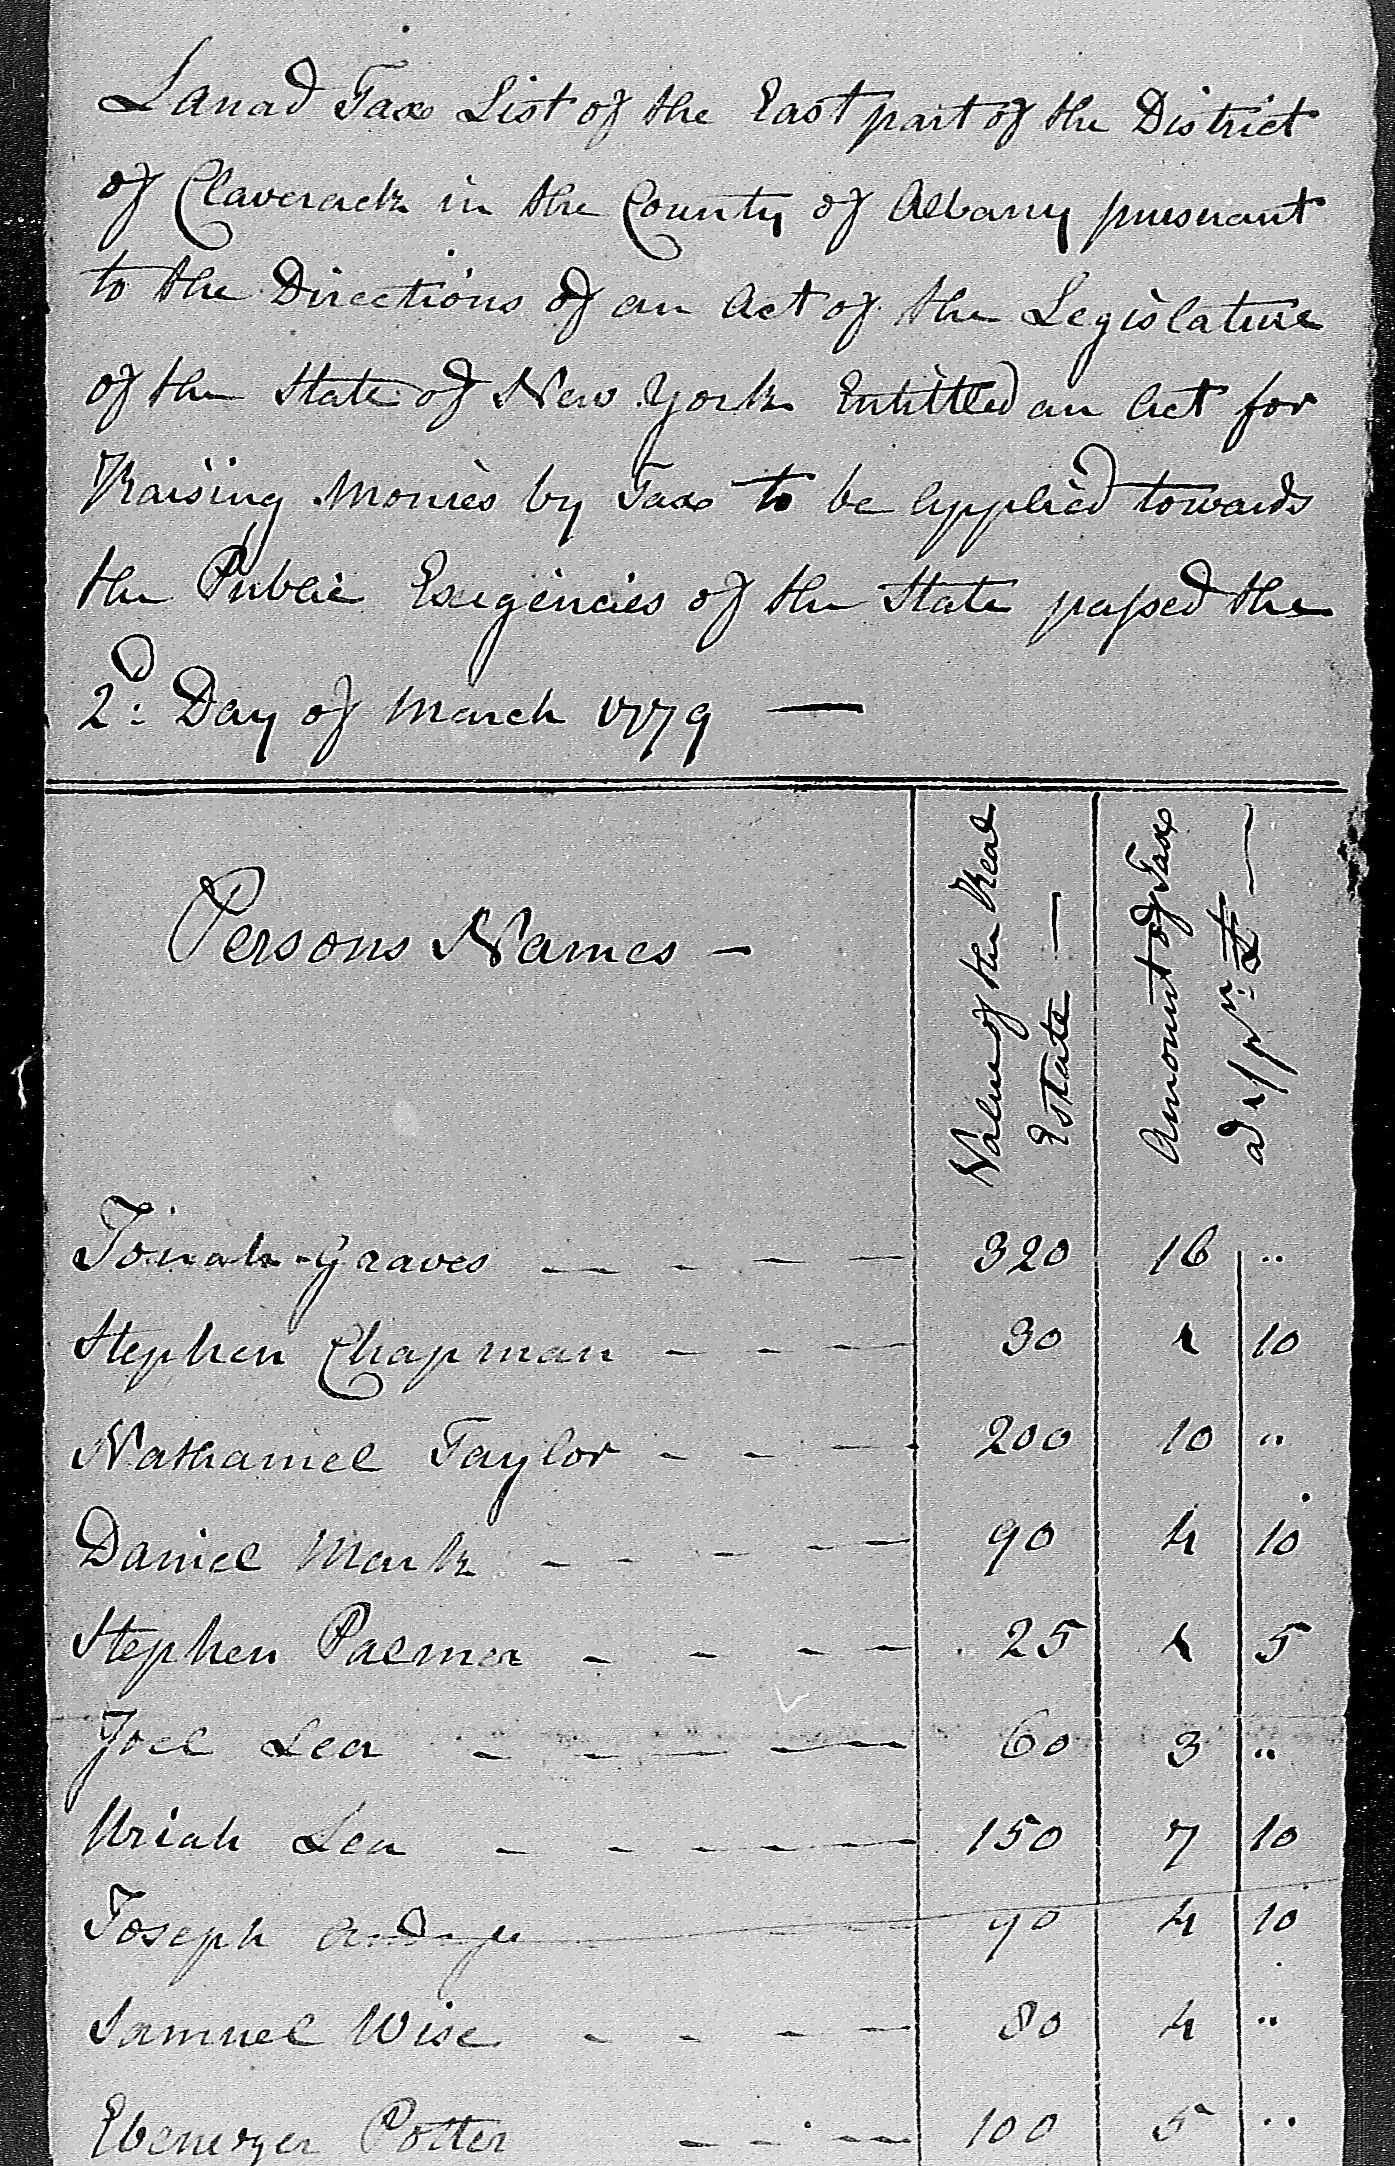 Lanad Tax List of the East part of the District
of Claverack in the County of Albany pursuant
to the Directions of an Act of the Legislature
of the State of New York Entittled an Act for
Raising Monies by Tax to be Applied towards
the Public Exigencies of the State passed the
2d: Day of March 1779 —
Persons Names –
Value of the Real
Estate —
Amount of Tax
a 1/ pr: £ —
Graves 320 16 "
Stephen Chapman 30 1 10
Nathaniel Taylor 200 10 "
Daniel Mark 90 4 10
Stephen Palmer 25 1 5
Joel Lea 60 3 "
Uriah Lea 150 7 10
Joseph 90 4 10
Samuel Wise 80 4 "
Ebenezer Potter 100 5 "